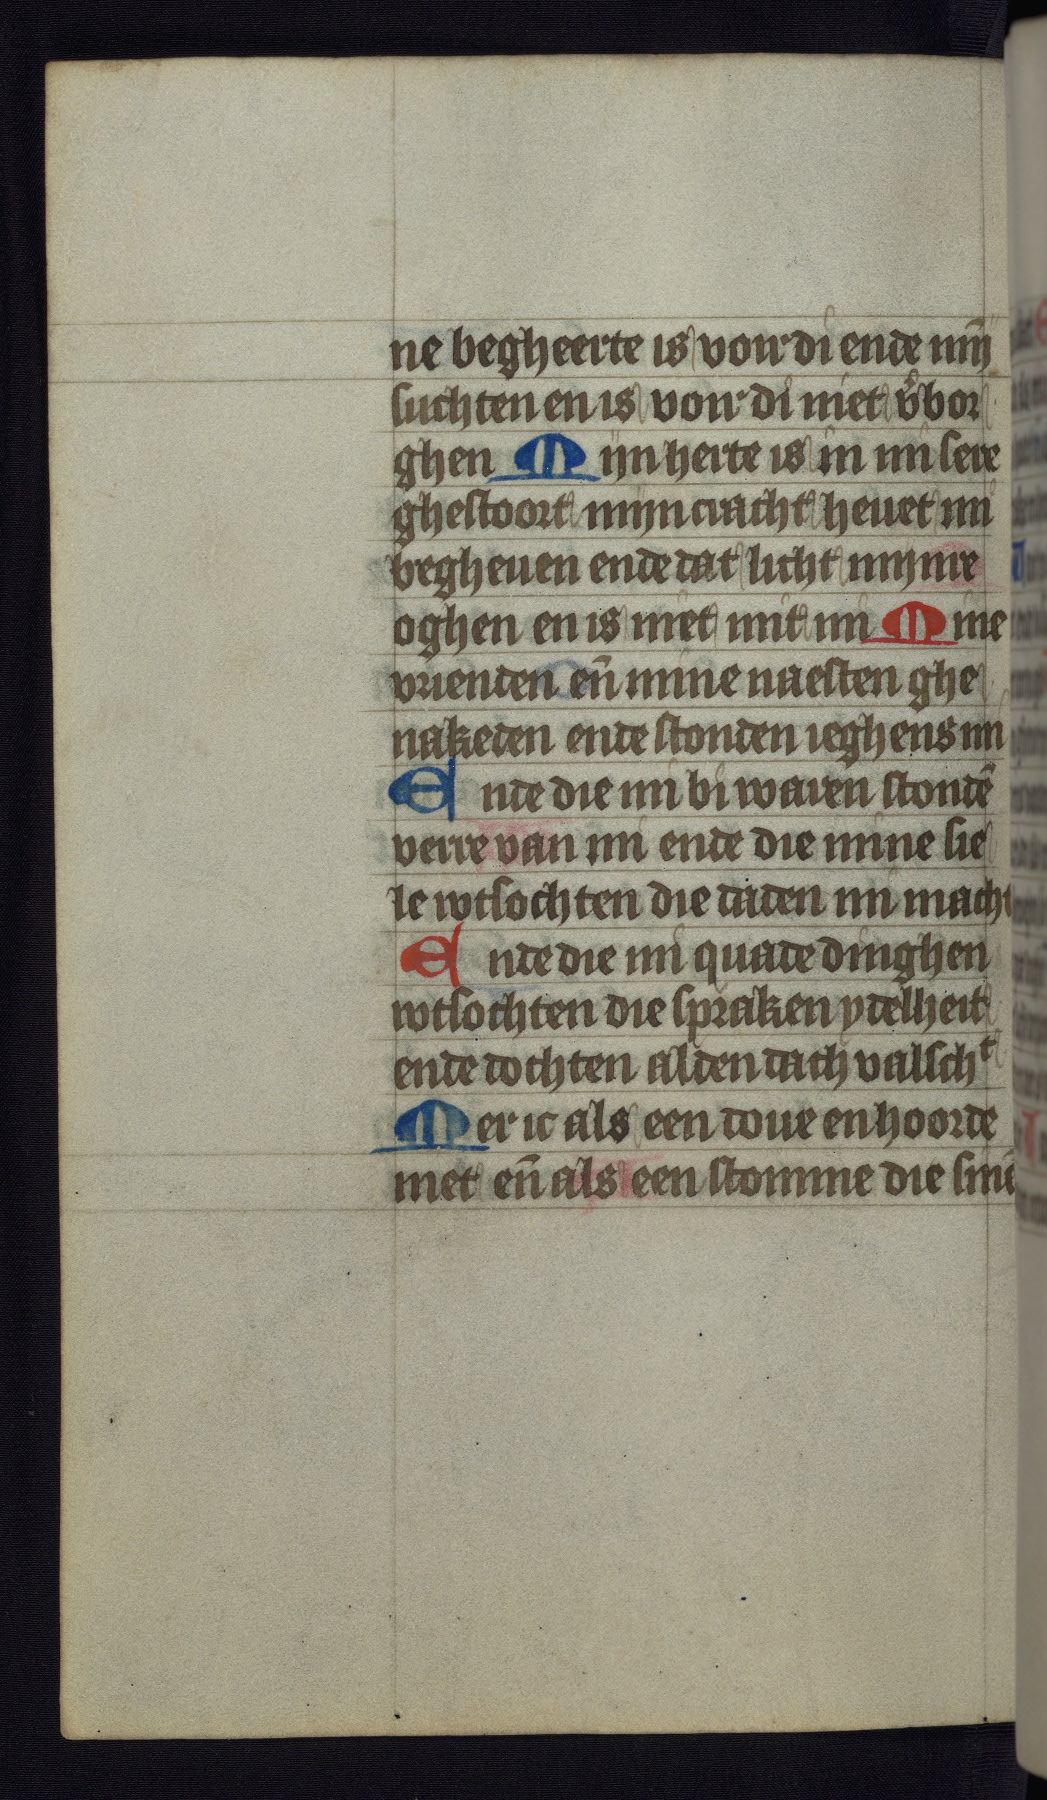 ne begheerte is voir di ende mijn
suchten en is voir di niet v̓bor
ghen Mijn herte is in mi sere
ghestoort mijn cracht heuet mi
begheuen ende dat licht mijnre
oghen en is niet mit mi Mine
vrienden eñ mine naesten ghe
nakeden ende stonden ieghens mi
Ende die mi bi waren stondē
verre van mi ende die mine sie
le wtsochten die daden mi macht
Ende die mi quade dinghen
wtsochten die spraken ydelheit
ende dochten alden dach valschᵗ
Mer ic als een doue en hoorde
niet eñ als een stomme die sinē